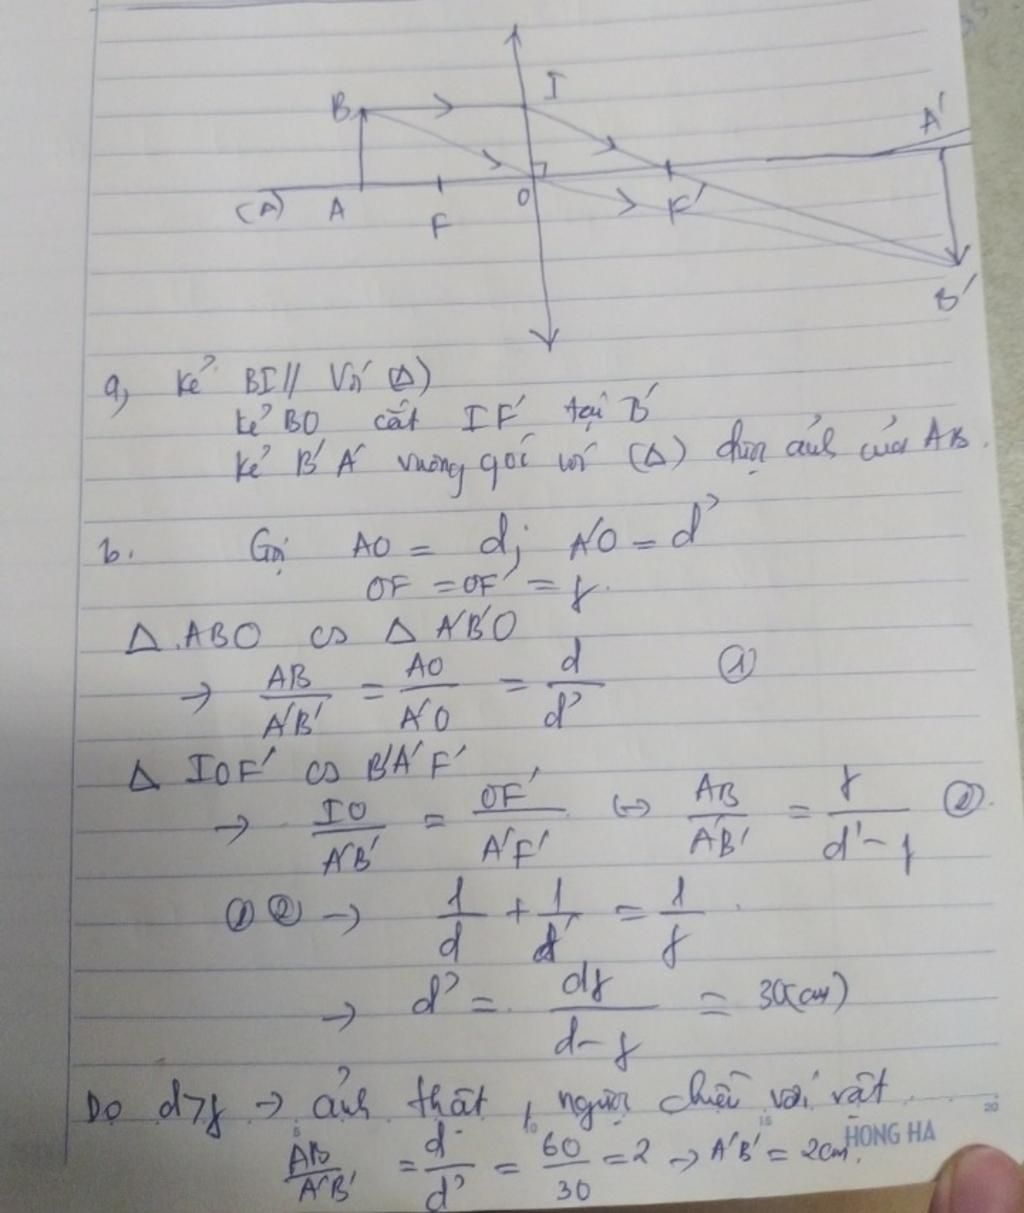 I
B
A'
(Δ) A F O F'
B'
a, Kẻ BI // Với (Δ)
Kẻ BO cắt IF' tại B'
Kẻ B'A' vuông góc với (Δ) được ảnh của AB.
b. Gọi AO = d; A'O = d'
OF = OF' = f.
Δ ABO ∽ Δ A'B'O
→ AB/A'B' = AO/A'O = d/d' ①
Δ IOF' ∽ B'A'F'
→ IO/A'B' = OF'/A'F' ↔ AB/A'B' = f/d'-f ②.
① ② → 1/d + 1/d' = 1/f.
→ d' = df/d-f = 30(cm)
Do d>f → ảnh thật, ngược chiều với vật
AB/A'B' = d/d' = 60/30 = 2 → A'B' = 2cm.
5 10 15 20
HONG HA